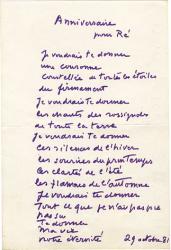 Anniversaire
pour Ré
Je voudrais te donner
une couronne
constellée de toutes les étoiles
du firmament
Je voudrais te donner
les chants des rossignols
de toute la terre
Je voudrais te donner
les silences de l'hiver
les sourires du printemps
les clartés de l'été
les flammes de l'automne
Je voudrais te donner
Tout ce que je n'ai pas
pas su
Te donner
Ma vie
notre éternité
29 octobre 81